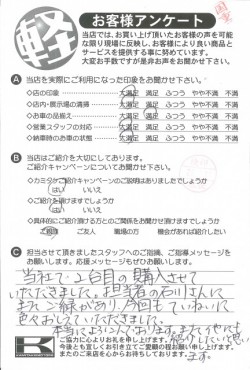 軽
お客様アンケート
当店では、お買い上げ頂いたお客様の声を可能
な限り現場に反映し、お客様により良い商品と
サービスを提供する事に努めています。
大変お手数ですが是非お声をお聞かせ下さい。
A 当店を実際にご利用になった印象をお聞かせ下さい。
◇店の印象 大満足 満足 ふつう やや不満 不満
◇店内・展示場の清掃 大満足 満足 ふつう やや不満 不満
◇お車の品揃え 大満足 満足 ふつう やや不満 不満
◇営業スタッフの対応 大満足 満足 ふつう やや不満 不満
◇納車時のお車の状態 大満足 満足 ふつう やや不満 不満
B 当店はご紹介を大切にしております。
ご紹介についてお聞かせください。
◇カミタケご紹介キャンペーンのご説明はありましたでしょうか
はい いいえ
◇ご紹介を頂けますでしょうか
はい いいえ
◇具体的にご紹介頂ける方とのご関係をお聞かせ頂けますでしょうか
ご親族 ご友人 職場の方 機会があれば紹介したい
C 担当させて頂きましたスタッフへのご指摘、ご指導メッセージを
お願いします。応援メッセージもぜひお願いします。
当社で2台目の購入させて
いただきました。担当者の石川さんに
またご縁があり、今回もていねいに
色々おしえていただきました。
本当によろこんでおります。またぜひ
紹介したいと思い
ます。
ご協力に心よりお礼を申し上げます。
今後とも宜しくお引き立てご愛顧の程お願い申し上げます。
またのご来店を心からお待ちしております。